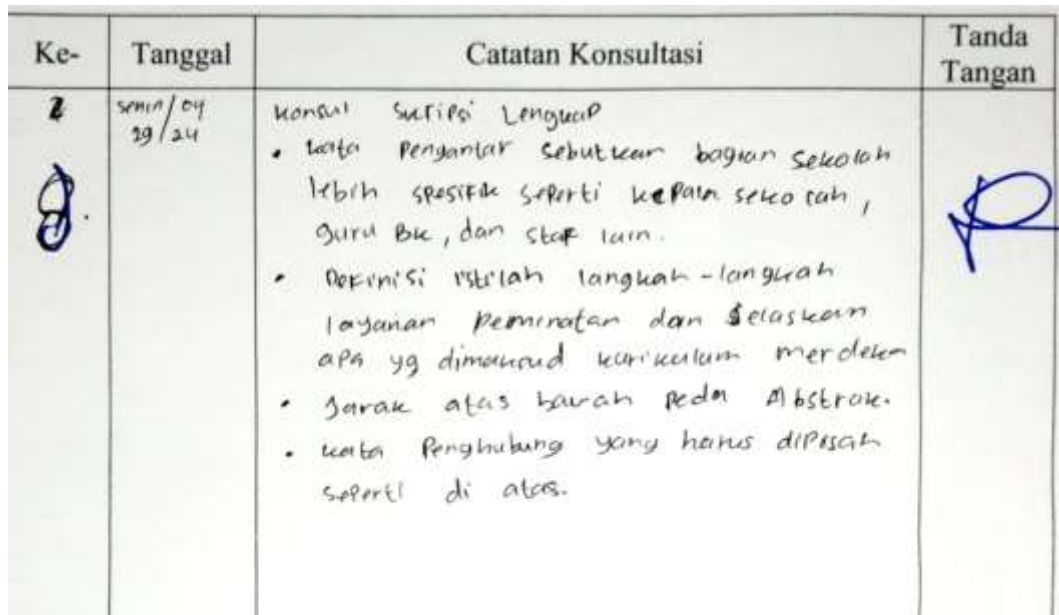 Ke-
Tanggal
Catatan Konsultasi
Tanda
Tangan
senin/04
29/24
Konsul Skripsi Lengkap
• Kata Pengantar sebutkan bagian sekolah
lebih spesifik seperti kepala sekolah,
guru BK, dan staf lain.
• Definisi istilah langkah-langkah
layanan peminatan dan jelaskan
apa yg dimaksud kurikulum merdeka
• Jarak atas bawah pada Abstrak.
• kata Penghubung yang harus dipisah
seperti di atas.